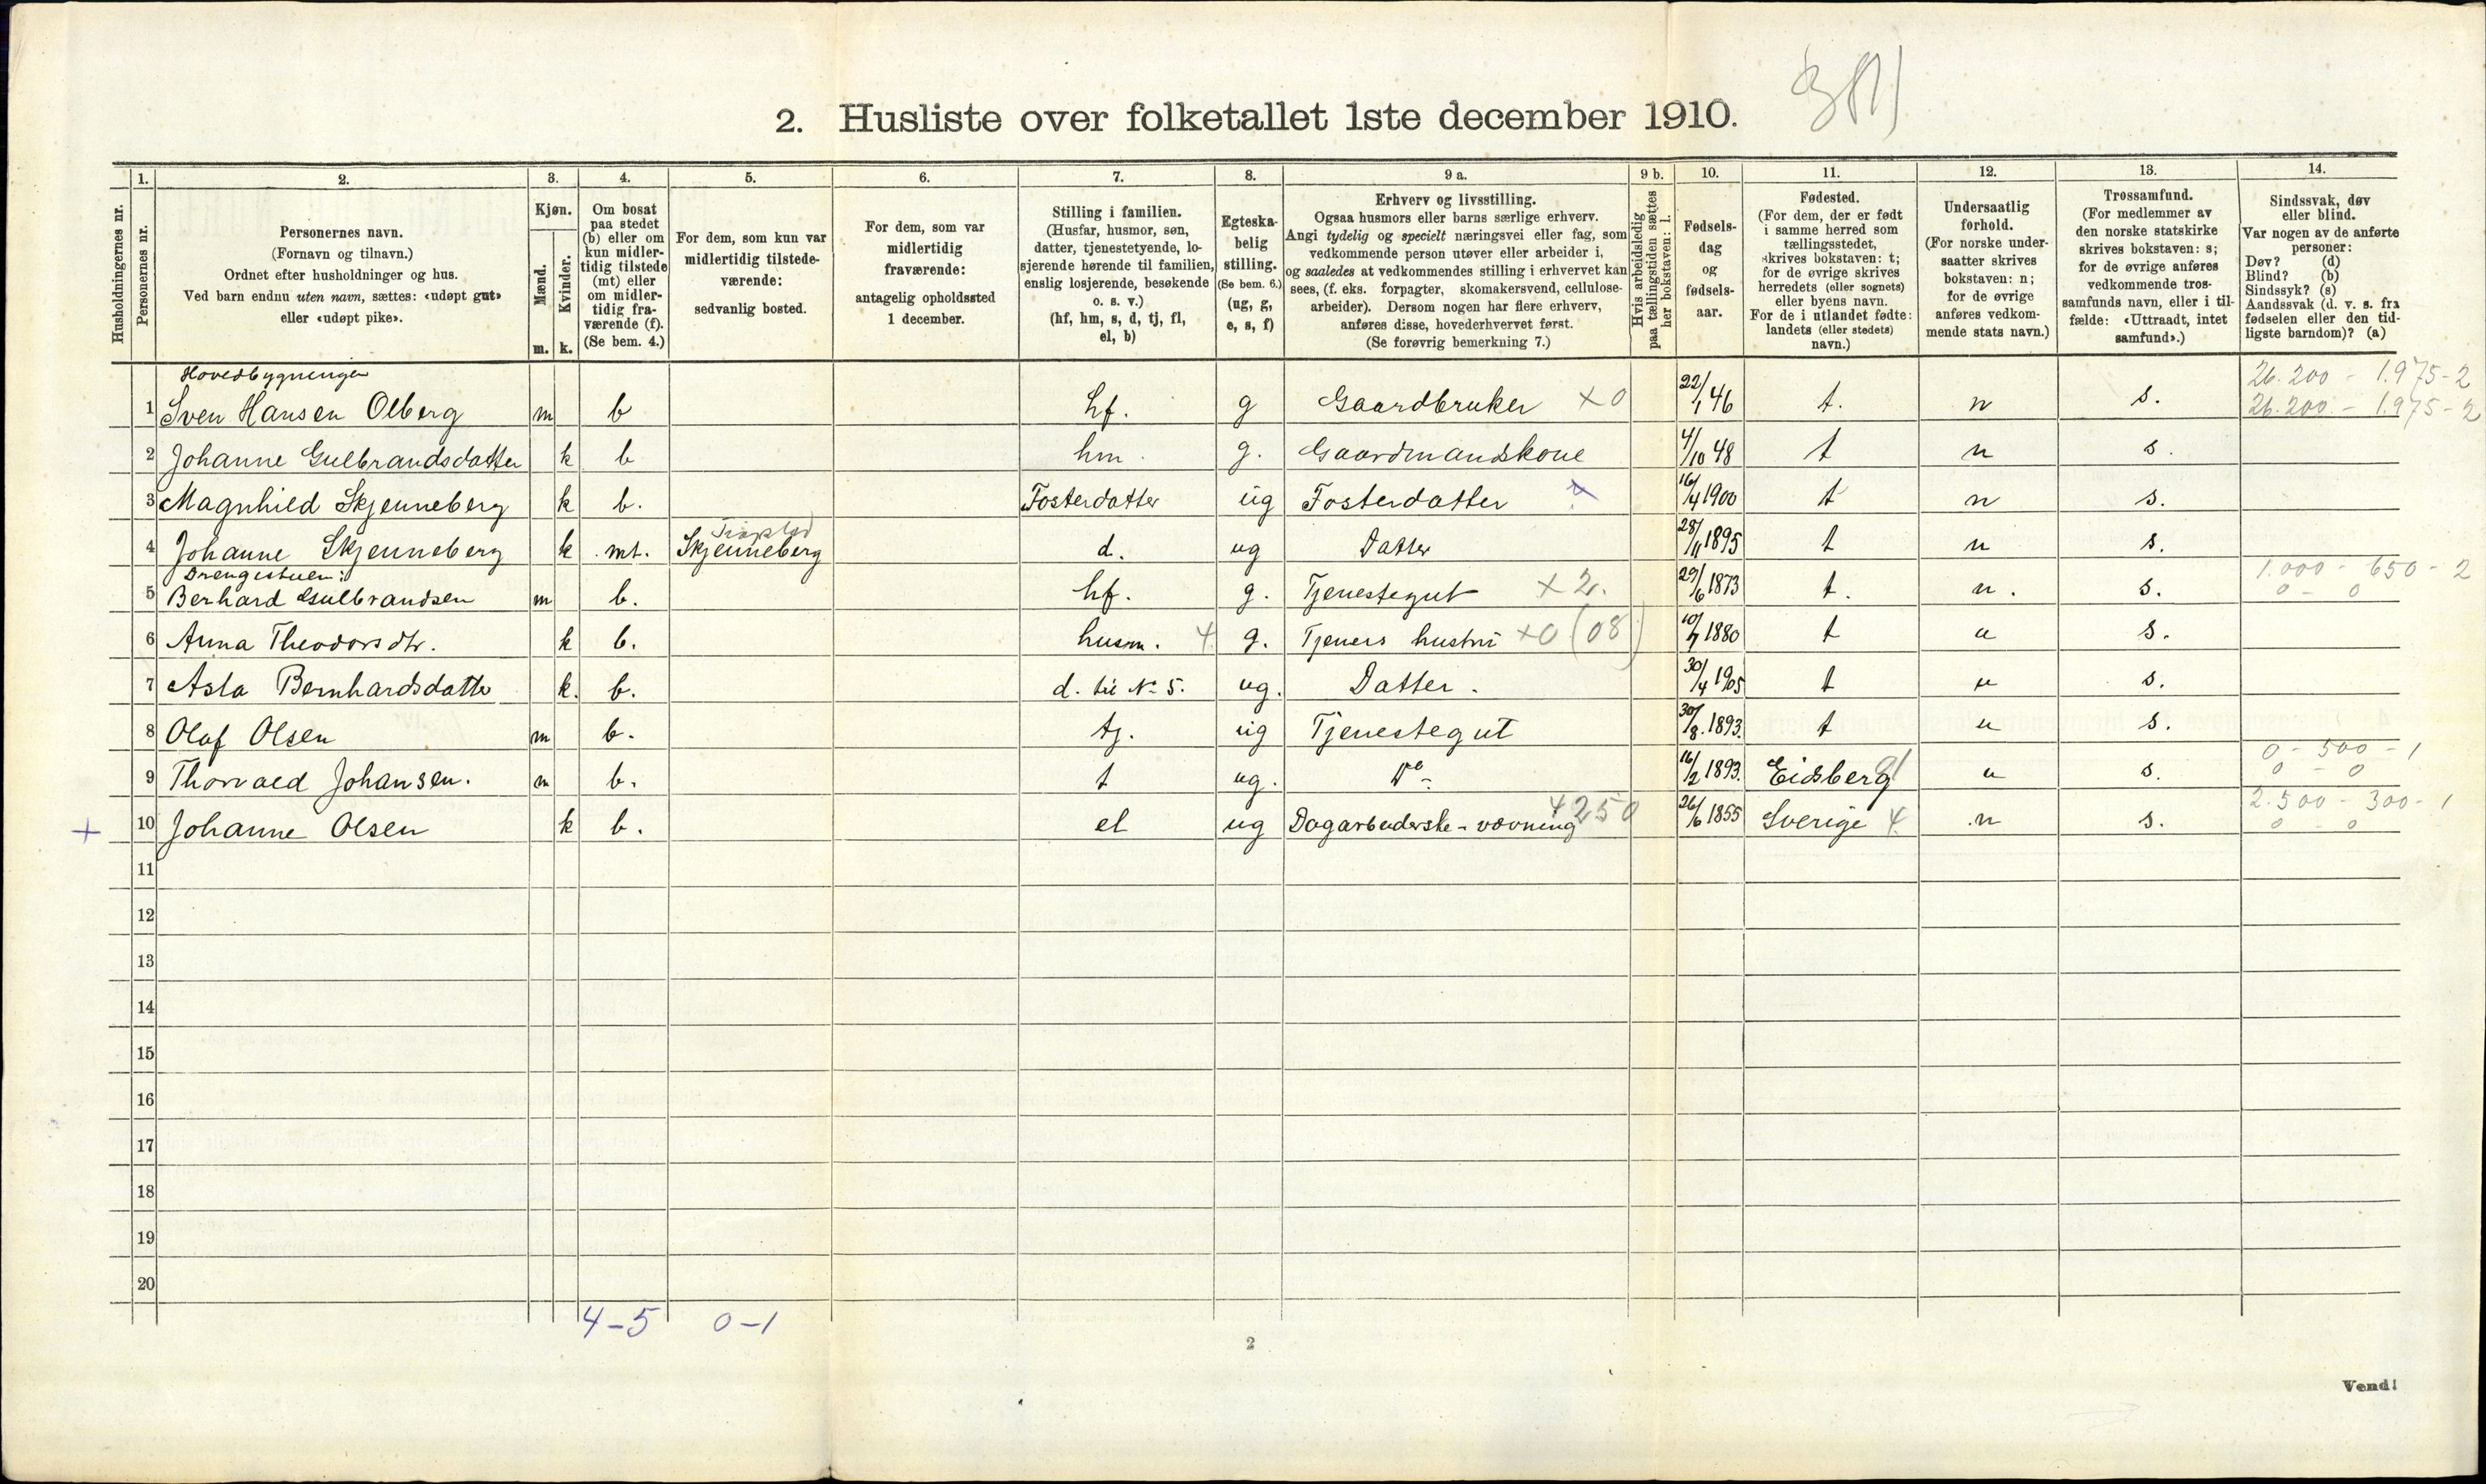 2. Husliste over folketallet 1ste december 1910.
Husholdningernes nr.
1. Personernes nr.
2. Personernes navn.
(Fornavn og tilnavn.)
Ordnet efter husholdninger og hus.
Ved barn endnu uten navn, sættes: «udøpt gut»
eller «udøpt pike».
3. Kjøn.
Mænd. m.
Kvinder. k.
4. Om bosat
paa stedet
(b) eller om
kun midler-
tidig tilstede
(mt) eller
om midler-
tidig fra-
værende (f).
(Se bem. 4.)
5. For dem, som kun var
midlertidig tilstede-
værende:
sedvanlig bosted.
6. For dem, som var
midlertidig
fraværende:
antagelig opholdssted
1 december.
7. Stilling i familien.
(Husfar, husmor, søn,
datter, tjenestetyende, lo-
sjerende hørende til familien,
enslig losjerende, besøkende
o. s. v.)
(hf, hm, s, d, tj, fl,
el, b)
8. Egteska-
belig
stilling.
(Se bem. 6.)
(ug, g,
e, s, f)
9 a. Erhverv og livsstilling.
Ogsaa husmors eller barns særlige erhverv.
Angi tydelig og specielt næringsvei eller fag, som
vedkommende person utøver eller arbeider i,
og saaledes at vedkommendes stilling i erhvervet kan
sees, (f. eks. forpagter, skomakersvend, cellulose-
arbeider). Dersom nogen har flere erhverv,
anføres disse, hovederhvervet først.
(Se forøvrig bemerkning 7.)
9 b. Hvis arbeidsledig
paa tællingstiden sættes
her bokstaven: l.
10. Fødsels-
dag
og
fødsels-
aar.
11. Fødested.
(For dem, der er født
i samme herred som
tællingsstedet,
skrives bokstaven: t;
for de øvrige skrives
herredets (eller sognets)
eller byens navn.
For de i utlandet fødte:
landets (eller stedets)
navn.)
12. Undersaatlig
forhold.
(For norske under-
saatter skrives
bokstaven: n;
for de øvrige
anføres vedkom-
mende stats navn.)
13. Trossamfund.
(For medlemmer av
den norske statskirke
skrives bokstaven: s;
for de øvrige anføres
vedkommende tros-
samfunds navn, eller i til-
fælde: «Uttraadt, intet
samfund».)
14. Sindssvak, døv
eller blind.
Var nogen av de anførte
personer:
Døv? (d)
Blind? (b)
Sindssyk? (s)
Aandssvak (d. v. s. fra
fødselen eller den tid-
ligste barndom)? (a)
Hovedbygningen 26.200 - 1.975 - 2
1 Sven Hansen Olberg m b hf. g Gaardbruker x0 22/1 46 t. n s. 26.200 - 1.975 - 2
2 Johanne Gulbrandsdatter k b hm. g. Gaardmandskone 4/10 48 t n s.
3 Magnhild Skjenneberg k b. Fosterdatter ug Fosterdatter 16/4 1900 t n s.
Trøgstad
4 Johanne Skjenneberg k mt. Skjenneberg d. ug Datter 28/11 1895 t n s.
Drengestuen: 1.000 - 650 - 2
5 Berhard Gulbrandsen m b. hf. g. Tjenestegut x2. 29/6 1873 t. n. s. 0 - 0
6 Anna Theodorsdtr. k b. husm. 4 g. Tjeners hustru x0 (08) 10/7 1880 t n s.
7 Asta Bernhardsdatte k. b. d. til No 5. ug. Datter. 30/4 1905 t n s.
8 Olaf Olsen m b. tj. ug Tjenestegut 30/8. 1893. t n s.
0 - 500 - 1
9 Thorvald Johansen. m b. t ug. Do 16/2 1893. Eidsberg n s. 0 - 0
4250 2.500 - 300 - 1
+ 10 Johanne Olsen k b. el ug Dagarbeiderske - vævning 26/6 1855 Sverige 4. n s. 0 - 0
11
12
13
14
15
16
17
18
19
20
4-5 0-1
2
Vend!